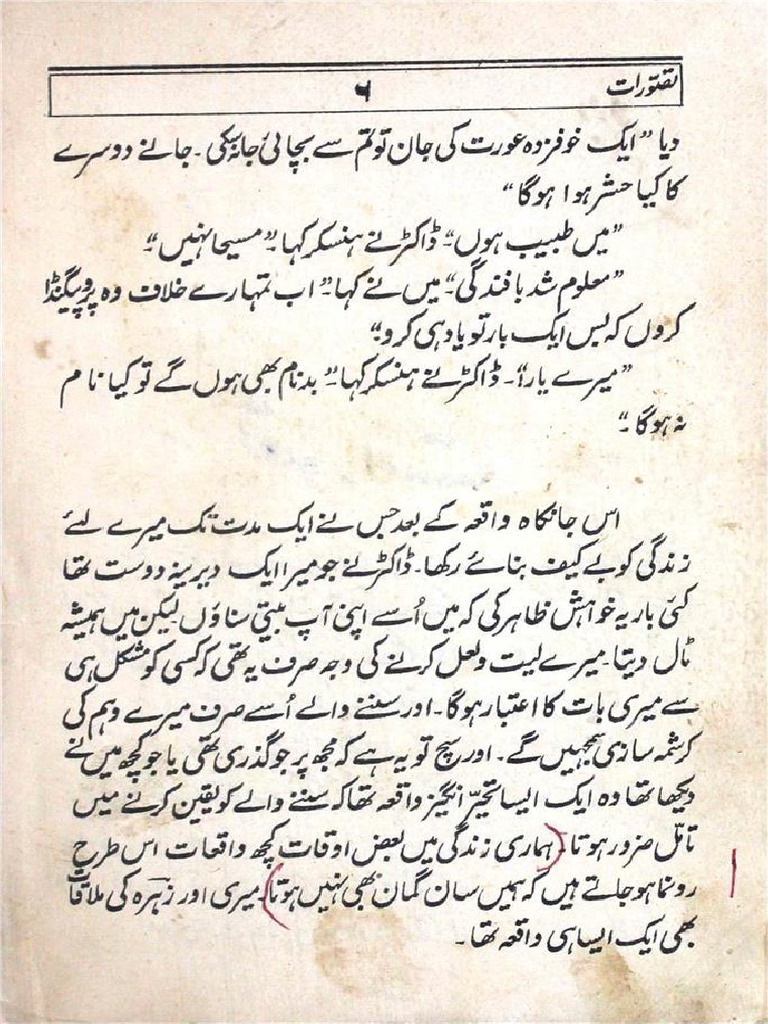 تصورات
۶
دیا "ایک خوفزدہ عورت کی جان تو تم سے بچائی جا نہ سکی۔ جانے دوسرے
کا کیا حشر ہوا ہوگا"
"میں طبیب ہوں"۔ ڈاکٹر نے ہنسکر کہا۔ "مسیحا نہیں"۔
"معلوم شد بافندگی"۔ میں نے کہا۔ "اب تمہارے خلاف وہ پروپیگنڈا
کروں کہ بس ایک بار تو یاد ہی کرو۔"
"میرے یار"۔ ڈاکٹر نے ہنسکر کہا۔ "بدنام بھی ہوں گے تو کیا نام
نہ ہوگا۔"
اس جانکاہ واقعہ کے بعد جس نے ایک مدت تک میرے لئے
زندگی کو بے کیف بنائے رکھا۔ ڈاکٹر نے جو میرا ایک دیرینہ دوست تھا
کئی بار یہ خواہش ظاہر کی کہ میں اُسے اپنی آپ بیتی سناؤں لیکن میں ہمیشہ
ٹال دیتا۔ میرے لیت و لعل کرنے کی وجہ صرف یہ تھی کہ کسی کو مشکل ہی
سے میری بات کا اعتبار ہوگا۔ اور سننے والے اُسے صرف میرے وہم کی
کرشمہ سازی سمجھیں گے۔ اور سچ تو یہ ہے کہ مجھ پر جو گذری تھی یا جو کچھ میں نے
دیکھا تھا وہ ایک ایسا تحیّر انگیز واقعہ تھا کہ سننے والے کو یقین کرنے میں
تامّل ضرور ہوتا۔ (ہماری زندگی میں بعض اوقات کچھ واقعات اس طرح
رونما ہو جاتے ہیں کہ ہمیں سان گمان بھی نہیں ہوتا)۔ میری اور زہرہ کی ملاقات
بھی ایک ایسا ہی واقعہ تھا۔